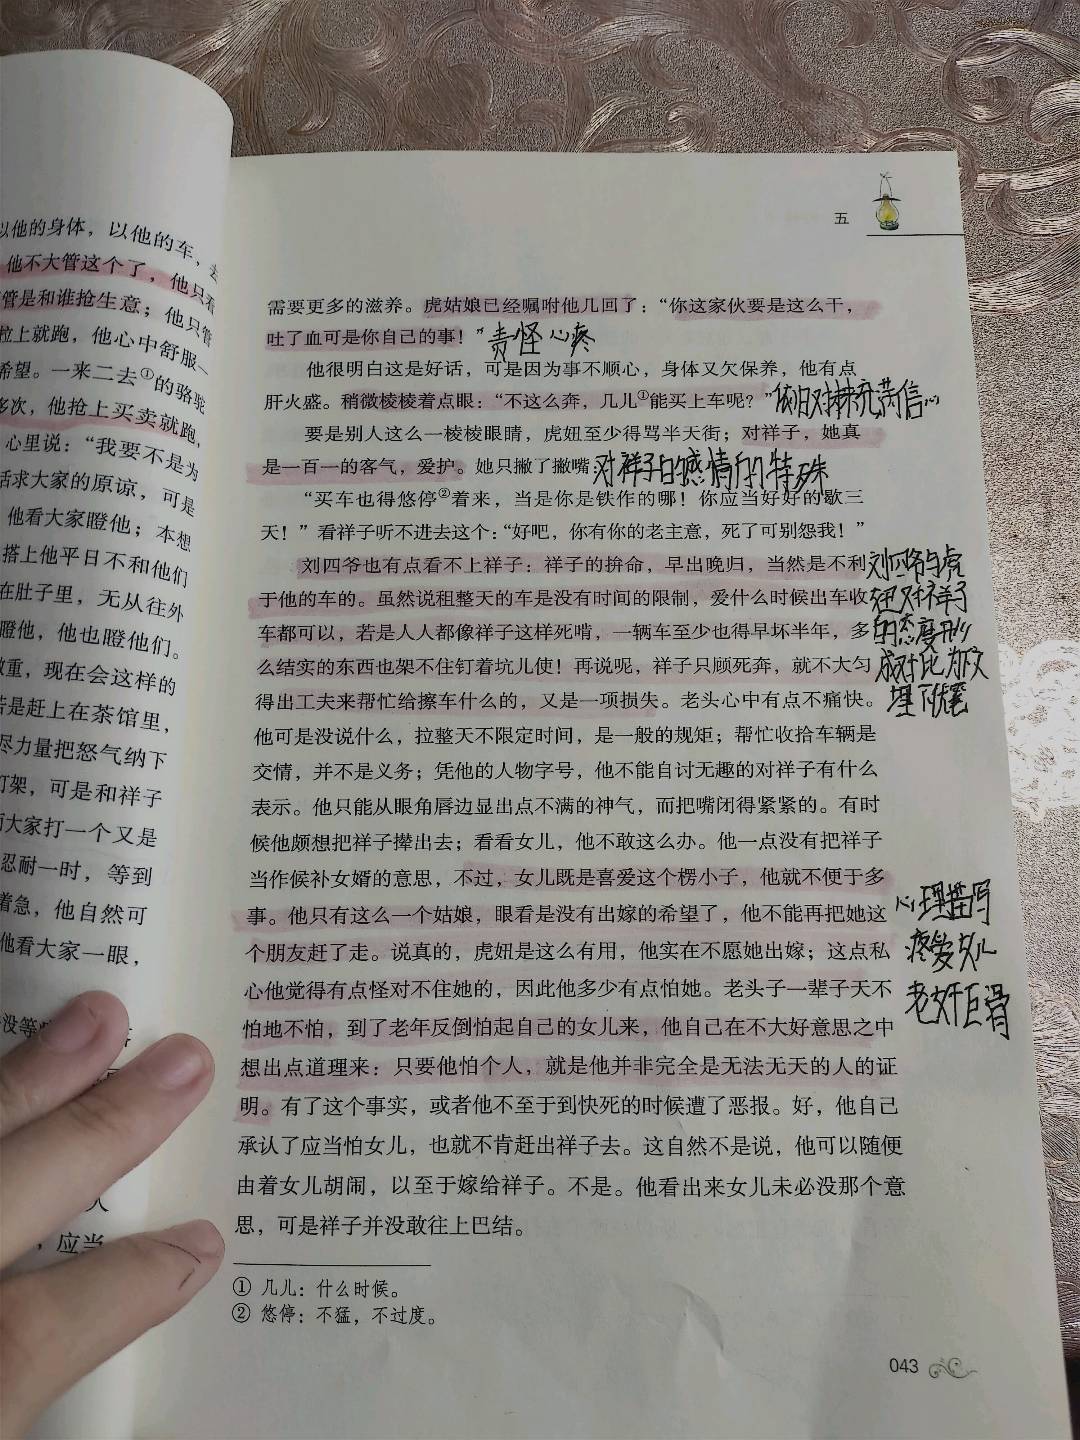 以他的身体，以他的车，去
他不大管这个了，他只看
管是和谁抢生意；他只管
拉上就跑，他心中舒服一
希望。一来二去①的骆驼
多次，他抢上买卖就跑，
心里说：“我要不是为
求大家的原谅，可是
他看大家瞪他；本想
搭上他平日不和他们
在肚子里，无从往外
瞪他，他也瞪他们。
敬重，现在会这样的
若是赶上在茶馆里，
尽力量把怒气纳下
打架，可是和祥子
大家打一个又是
忍耐一时，等到
着急，他自然可
他看大家一眼，
没等
人
，应当
五
需要更多的滋养。虎姑娘已经嘱咐他几回了：“你这家伙要是这么干，
吐了血可是你自己的事！”
责怪 心疼
他很明白这是好话，可是因为事不顺心，身体又欠保养，他有点
肝火盛。稍微棱棱着点眼：“不这么奔，几儿①能买上车呢？”
依旧对未来充满信心
要是别人这么一棱棱眼睛，虎妞至少得骂半天街；对祥子，她真
是一百一的客气，爱护。她只撇了撇嘴：
对祥子的感情的特殊
“买车也得悠停②着来，当是你是铁作的哪！你应当好好的歇三
天！”看祥子听不进去这个：“好吧，你有你的老主意，死了可别怨我！”
刘四爷也有点看不上祥子：祥子的拚命，早出晚归，当然是不利
于他的车的。虽然说租整天的车是没有时间的限制，爱什么时候出车收
车都可以，若是人人都像祥子这样死啃，一辆车至少也得早坏半年，多
么结实的东西也架不住钉着坑儿使！再说呢，祥子只顾死奔，就不大匀
得出工夫来帮忙给擦车什么的，又是一项损失。老头心中有点不痛快。
他可是没说什么，拉整天不限定时间，是一般的规矩；帮忙收拾车辆是
交情，并不是义务；凭他的人物字号，他不能自讨无趣的对祥子有什么
表示。他只能从眼角唇边显出点不满的神气，而把嘴闭得紧紧的。有时
候他颇想把祥子撵出去；看看女儿，他不敢这么办。他一点没有把祥子
当作候补女婿的意思，不过，女儿既是喜爱这个愣小子，他就不便于多
事。他只有这么一个姑娘，眼看是没有出嫁的希望了，他不能再把她这
个朋友赶了走。说真的，虎妞是这么有用，他实在不愿她出嫁；这点私
心他觉得有点怪对不住她的，因此他多少有点怕她。老头子一辈子天不
怕地不怕，到了老年反倒怕起自己的女儿来，他自己在不大好意思之中
想出点道理来：只要他怕个人，就是他并非完全是无法无天的人的证
明。有了这个事实，或者他不至于到快死的时候遭了恶报。好，他自己
承认了应当怕女儿，也就不肯赶出祥子去。这自然不是说，他可以随便
由着女儿胡闹，以至于嫁给祥子。不是。他看出来女儿未必没那个意
思，可是祥子并没敢往上巴结。
刘四爷与虎
妞对祥子
的态度形
成对比 为后文
埋下伏笔
心理描写
疼爱女儿
老奸巨滑
① 几儿：什么时候。
② 悠停：不猛，不过度。
043